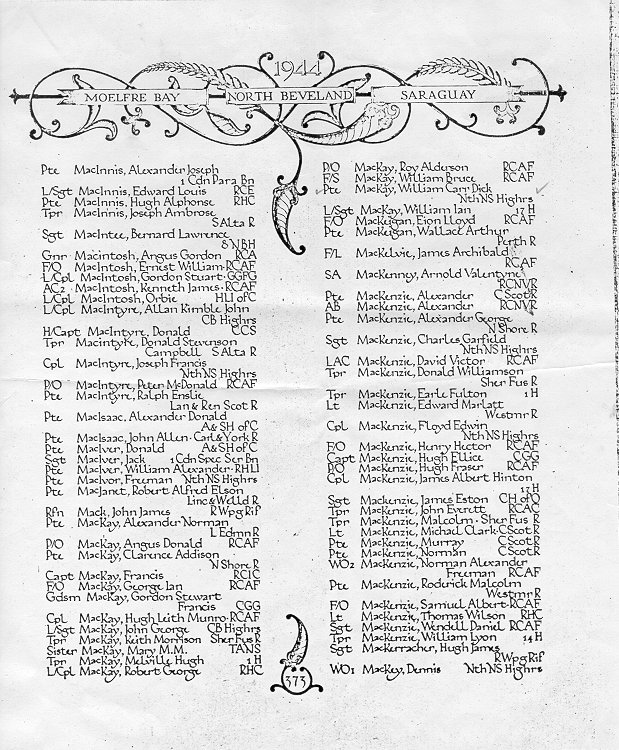 1944
MOELFRE BAY NORTH BEVELAND SARAGUAY
Pte MacInnis, Alexander Joseph
1 Cdn Para Bn
L/Sgt MacInnis, Edward Louis RCE
Pte MacInnis, Hugh Alphonse RHC
Tpr MacInnis, Joseph Ambrose
S Alta R
Sgt MacIntee, Bernard Lawrence
8 NBH
Gnr Macintosh, Angus Gordon RCA
F/O MacIntosh, Ernest William · RCAF
L/Cpl MacIntosh, Gordon Stuart · GGFG
AC2 · MacIntosh, Kenneth James · RCAF
L/Cpl MacIntosh, Orbie HLI of C
L/Cpl MacIntyre, Allan Kimble John
CB Highrs
H/Capt MacIntyre, Donald CCS
Tpr Macintyre, Donald Stevenson
Campbell S Alta R
Cpl MacIntyre, Joseph Francis
Nth NS Highrs
P/O MacIntyre, Peter McDonald RCAF
Pte MacIntyre, Ralph Enslie
Lan & Ren Scot R
Pte MacIsaac, Alexander Donald
A & SH of C
Pte MacIsaac, John Allen · Carl & York R
Pte MacIver, Donald A & SH of C
Sgt MacIver, Jack 1 Cdn Spec Ser Bn
Pte MacIver, William Alexander · RHLI
Pte MacIvor, Freeman Nth NS Highrs
Pte MacJanet, Robert Alfred Elson
Linc & Welld R
Rfn Mack, John James R Wpg Rif
Pte MacKay, Alexander Norman
L Edmn R
P/O MacKay, Angus Donald RCAF
Pte MacKay, Clarence Addison
N Shore R
Capt MacKay, Francis RCIC
F/O MacKay, George Ian RCAF
Gdsm MacKay, Gordon Stewart
Francis CGG
Cpl MacKay, Hugh Leith Munro · RCAF
L/Sgt MacKay, John George CB Highrs
Tpr MacKay, Keith Morrison Sher Fus R
Sister MacKay, Mary M.M. TANS
Tpr MacKay, Melville Hugh 1 H
L/Cpl MacKay, Robert George RHC
P/O MacKay, Roy Alderson RCAF
F/S MacKay, William Bruce RCAF
Pte MacKay, William Carr Dick
Nth NS Highrs
L/Sgt MacKay, William Ian 17 H
F/O MacKeigan, Eion Lloyd RCAF
Pte MacKeigan, Wallace Arthur
Perth R
F/L MacKelvie, James Archibald
RCAF
SA MacKenney, Arnold Valentyne
RCNVR
Pte MacKenzie, Alexander C Scot R
AB MacKenzie, Alexander RCNVR
Pte MacKenzie, Alexander George
N Shore R
Sgt MacKenzie, Charles Garfield
Nth NS Highrs
LAC MacKenzie, David Victor RCAF
Tpr MacKenzie, Donald Williamson
Sher Fus R
Tpr MacKenzie, Earle Fulton 1 H
Lt MacKenzie, Edward Marlatt
Westmr R
Cpl MacKenzie, Floyd Edwin
Nth NS Highrs
F/O MacKenzie, Henry Hector RCAF
Capt MacKenzie, Hugh Ellice CGG
P/O MacKenzie, Hugh Fraser RCAF
Cpl MacKenzie, James Albert Hinton
17 H
Sgt Mackenzie, James Eston CH of O
Tpr MacKenzie, John Everett RCAC
Tpr MacKenzie, Malcolm · Sher Fus R
Lt MacKenzie, Michael Clark · C Scot R
Pte MacKenzie, Murray C Scot R
Pte MacKenzie, Norman C Scot R
WO2 MacKenzie, Norman Alexander
Freeman RCAF
Pte MacKenzie, Roderick Malcolm
Westmr R
F/O MacKenzie, Samuel Albert · RCAF
Lt MacKenzie, Thomas Wilson RHC
Sgt MacKenzie, Wendell Daniel RCAF
Tpr MacKenzie, William Lyon 14 H
Sgt MacKerracher, Hugh James
R Wpg Rif
WO1 MacKey, Dennis Nth NS Highrs
373